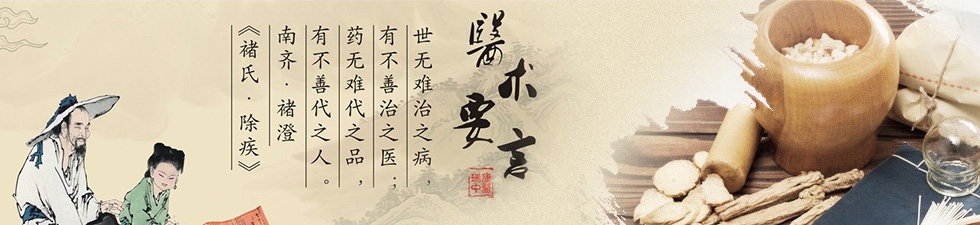 醫术要言
世无难治之病，
有不善治之医；
药无难代之品，
有不善代之人。
南齐·褚澄
《褚氏·除疾》